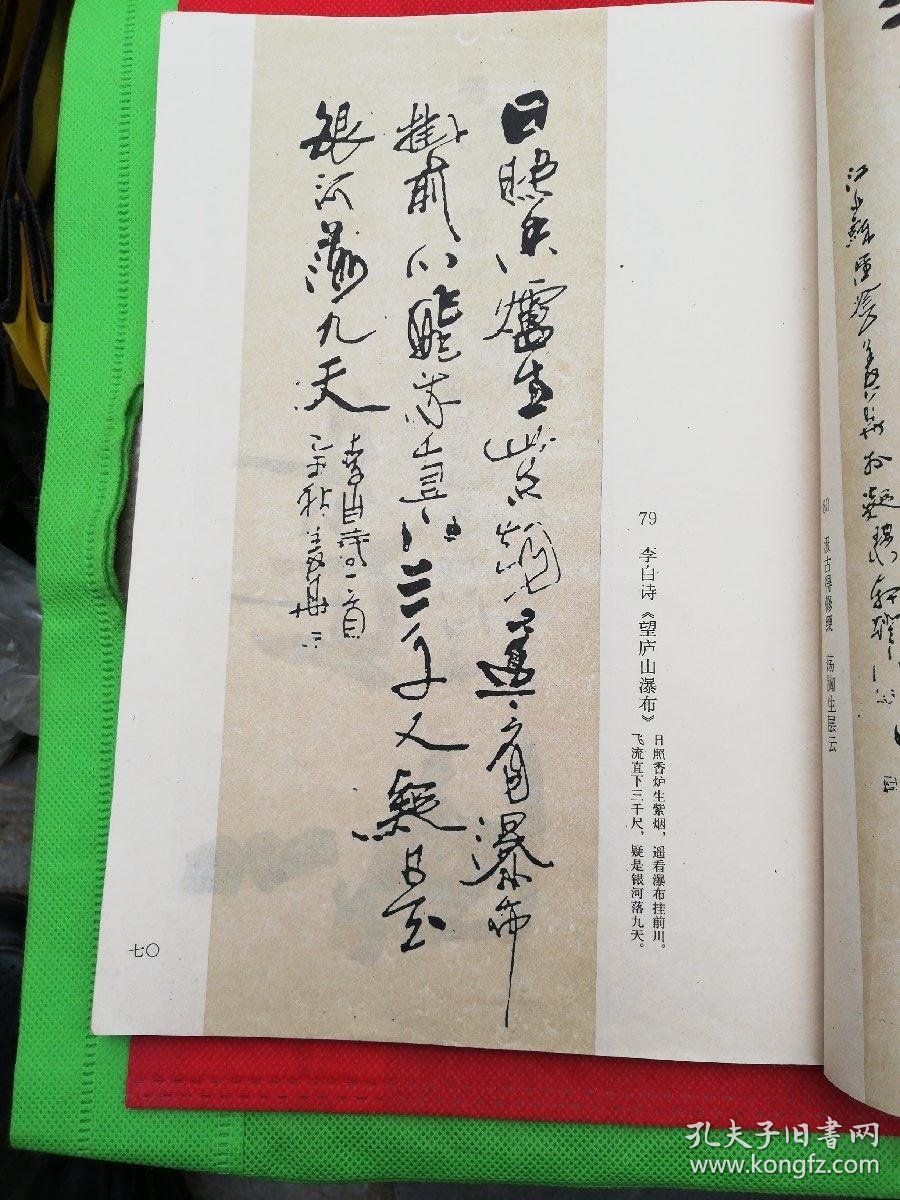 80 汲古得修绠 荡胸生层云
79 李白诗《望庐山瀑布》
日照香炉生紫烟，遥看瀑布挂前川。
飞流直下三千尺，疑是银河落九天。
日照香爐生紫烟遥看瀑布
掛前川飛流直下三千尺疑是
銀河落九天
李白詩一首
七〇
孔夫子旧书网
www.kongfz.com